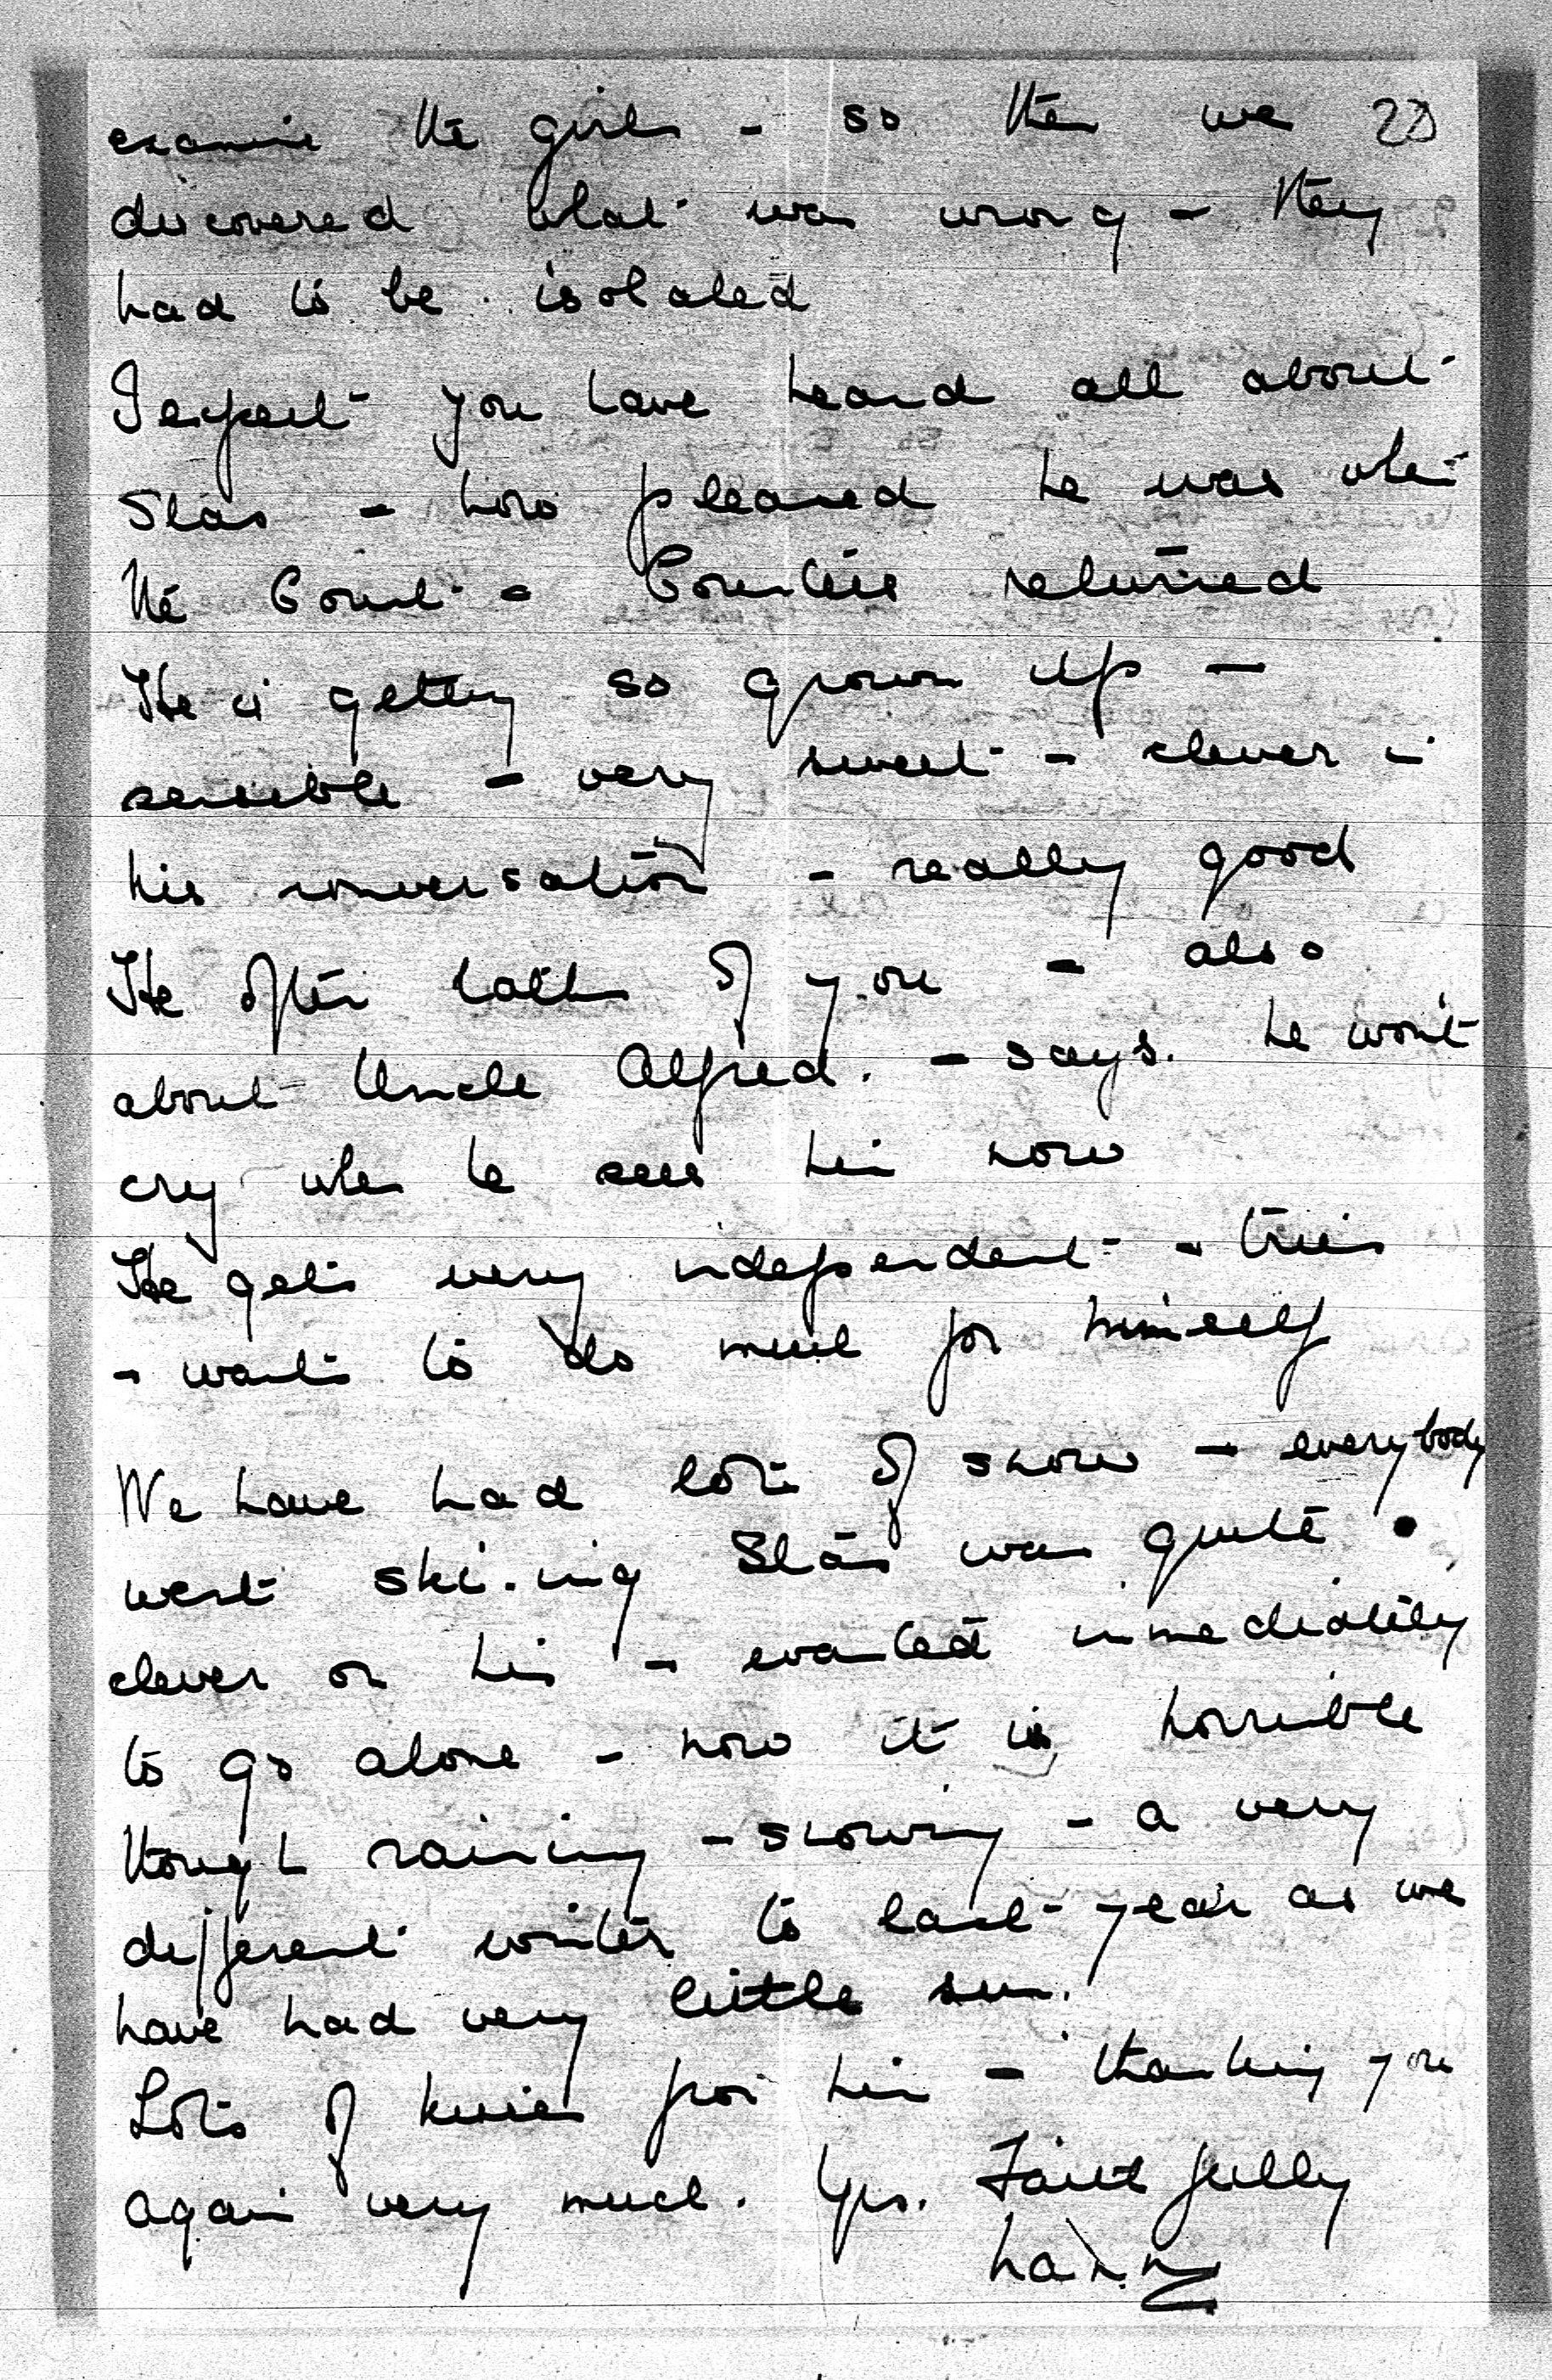 examine the girls - so then we 28
discovered what was wrong - they
had to be isolated
I expect you have heard all about
Stas - how pleased he was when
the Count - Countess returned
He is getting so grown up -
sensible - very sweet - clever in
his conversation - really good
He often talks of you - also
about Uncle Alfred. - says. he won't
cry when he sees him now
He gets very independent - tries
- wants to do much for himself
We have had lots of snow - everybody
went ski-ing Stas was quite
clever on his - wanted immediately
to go alone - now it is horrible
though raining - snowing - a very
different winter to last year as we
have had very little sun.
Lots of kisses from him - thanking you
again very much. Yrs. Faithfully